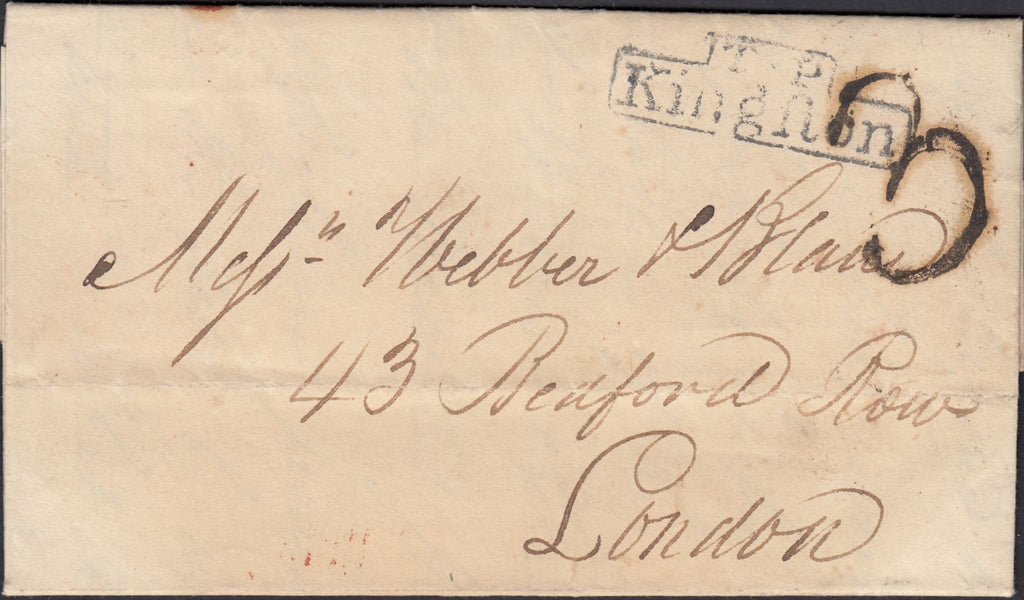 T.P
Kinghton
3
Messrs Webber & Bland
43 Bedford Row
London